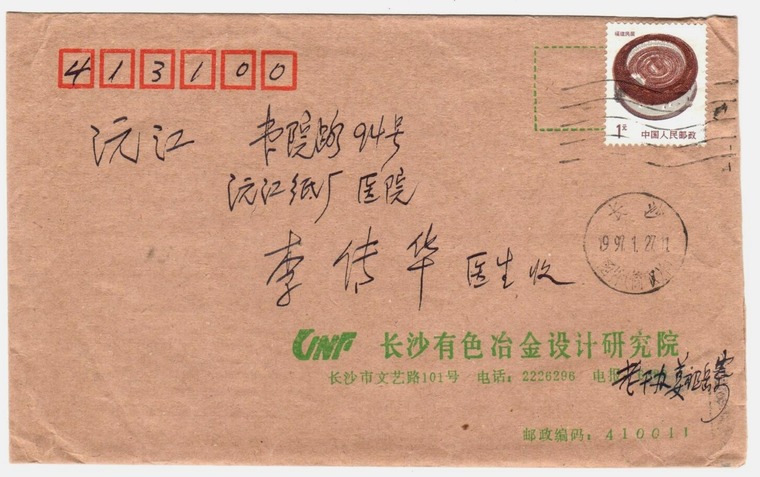 413100
福建民居
1元
中国人民邮政
沅江 书院路94号
沅江纸厂医院
李传华 医生收
长沙
1997.1.27.11
CINF 长沙有色冶金设计研究院
长沙市文艺路101号 电话: 2226296 电报
老干办姜
邮政编码: 410011